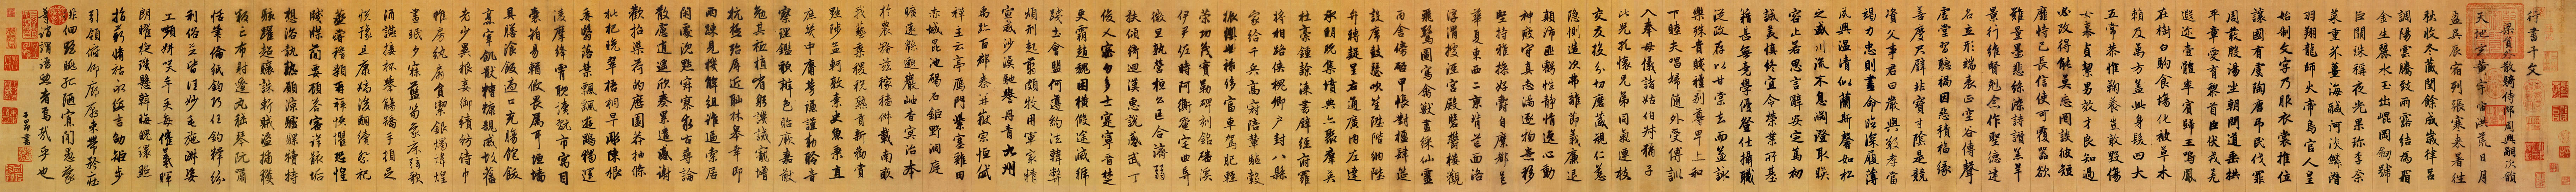 行書千文
梁員外散騎侍郎周興嗣次韻
天地玄黃宇宙洪荒日月
盈昃辰宿列張寒來暑往
秋收冬藏閏餘成歲律呂
調陽雲騰致雨露結為霜
金生麗水玉出崐岡劍號
巨闕珠稱夜光果珍李柰
菜重芥薑海鹹河淡鱗潛
羽翔龍師火帝鳥官人皇
始制文字乃服衣裳推位
讓國有虞陶唐弔民伐罪
周發殷湯坐朝問道垂拱
平章愛育黎首臣伏戎羌
遐邇壹體率賓歸王鳴鳳
在樹白駒食場化被草木
賴及萬方蓋此身髮四大
五常恭惟鞠養豈敢毀傷
女慕貞絜男效才良知過
必改得能莫忘罔談彼短
靡恃己長信使可覆器欲
難量墨悲絲染詩讚羔羊
景行維賢剋念作聖德建
名立形端表正空谷傳聲
虛堂習聽禍因惡積福緣
善慶尺璧非寶寸陰是競
資父事君曰嚴與敬孝當
竭力忠則盡命臨深履薄
夙興溫凊似蘭斯馨如松
之盛川流不息淵澄取映
容止若思言辭安定篤初
誠美慎終宜令榮業所基
籍甚無竟學優登仕攝職
從政存以甘棠去而益詠
樂殊貴賤禮別尊卑上和
下睦夫唱婦隨外受傅訓
入奉母儀諸姑伯叔猶子
比兒孔懷兄弟同氣連枝
交友投分切磨箴規仁慈
隱惻造次弗離節義廉退
顛沛匪虧性靜情逸心動
神疲守真志滿逐物意移
堅持雅操好爵自縻都邑
華夏東西二京背芒面洛
浮渭據涇宮殿盤鬱樓觀
飛驚圖寫禽獸畫綵仙靈
丙舍傍啟甲帳對楹肆筵
設席鼓瑟吹笙陞階納陛
弁轉疑星右通廣內左達
承明既集墳典亦聚群英
杜稾鍾隸漆書壁經府羅
將相路俠槐卿戶封八縣
家給千兵高冠陪輦驅轂
振纓世祿侈富車駕肥輕
策功茂實勒碑刻銘磻溪
伊尹佐時阿衡奄宅曲阜
微旦孰營桓公匡合濟弱
扶傾綺迴漢惠說感武丁
俊乂密勿多士寔寧晉楚
更霸趙魏困橫假途滅虢
踐土會盟何遵約法韓弊
煩刑起翦頗牧用軍最精
宣威沙漠馳譽丹青九州
禹跡百郡秦并嶽宗恒岱
禪主云亭鴈門紫塞雞田
赤城昆池碣石鉅野洞庭
曠遠緜邈巖岫杳冥治本
於農務茲稼穡俶載南畝
我藝黍稷稅熟貢新勸賞
黜陟孟軻敦素史魚秉直
庶幾中庸勞謙謹勑聆音
察理鑒貌辨色貽厥嘉猷
勉其祗植省躬譏誡寵增
抗極殆辱近恥林皋幸即
兩疏見機解組誰逼索居
閑處沉默寂寥求古尋論
散慮逍遙欣奏累遣慼謝
歡招渠荷的歷園莽抽條
枇杷晚翠梧桐早彫陳根
委翳落葉飄颻遊鵾獨運
凌摩絳霄耽讀翫市寓目
囊箱易輶攸畏屬耳垣墻
具膳飡飯適口充腸飽飫
烹宰飢厭糟糠親戚故舊
老少異糧妾御績紡侍巾
帷房紈扇員潔銀燭煒煌
晝眠夕寐藍笋象床弦歌
酒讌接杯舉觴矯手頓足
悅豫且康嫡後嗣續祭祀
蒸嘗稽顙再拜悚懼恐惶
牋牒簡要顧答審詳骸垢
想浴執熱願涼驢騾犢特
駭躍超驤誅斬賊盜捕獲
叛亡布射遼丸嵇琴阮嘯
恬筆倫紙鈞巧任釣釋紛
利俗並皆佳妙毛施淑姿
工顰妍笑年矢每催羲暉
朗曜旋璣懸斡晦魄環照
指薪脩祜永綏吉劭矩步
引領俯仰廊廟束帶矜莊
徘徊瞻眺孤陋寡聞愚蒙
等誚謂語助者焉哉乎也
子昂書